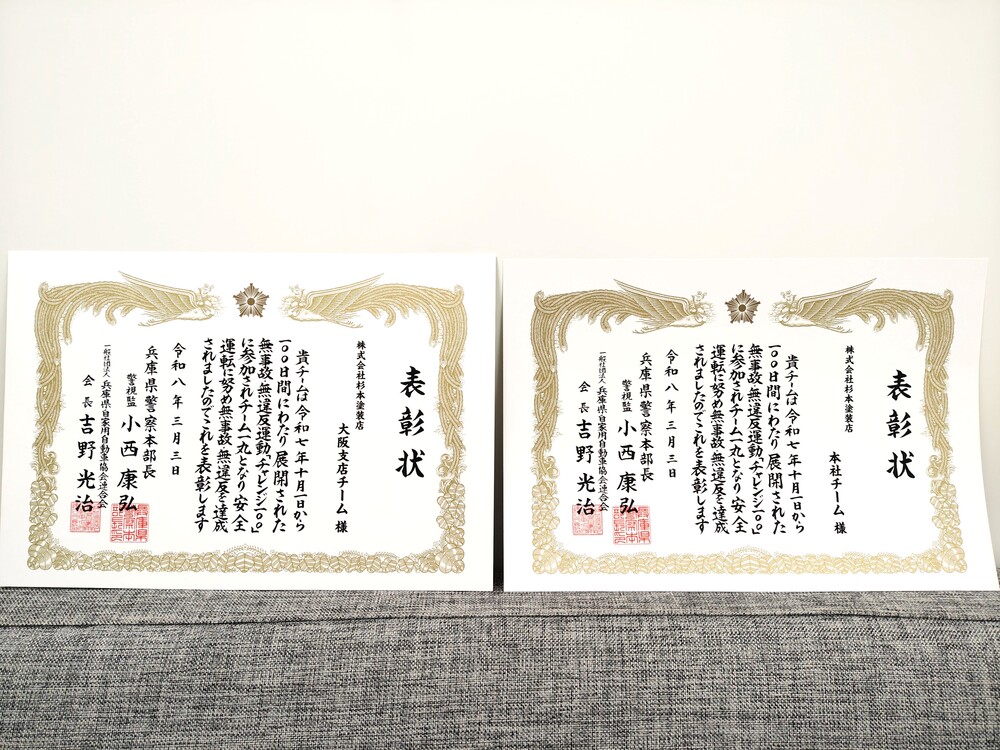 表彰状
株式会社杉本塗装店
本社チーム 様
貴チームは令和七年十月一日から
一〇〇日間にわたり展開された
無事故・無違反運動「チャレンジ一〇〇」
に参加されチーム一丸となり安全
運転に努め無事故・無違反を達成
されましたのでこれを表彰します
令和八年三月三日
兵庫県警察本部長
警視監 小西康弘
一般社団法人 兵庫県自家用自動車協会連合会
会長 吉野光治
表彰状
株式会社杉本塗装店
大阪支店チーム 様
貴チームは令和七年十月一日から
一〇〇日間にわたり展開された
無事故・無違反運動「チャレンジ一〇〇」
に参加されチーム一丸となり安全
運転に努め無事故・無違反を達成
されましたのでこれを表彰します
令和八年三月三日
兵庫県警察本部長
警視監 小西康弘
一般社団法人 兵庫県自家用自動車協会連合会
会長 吉野光治